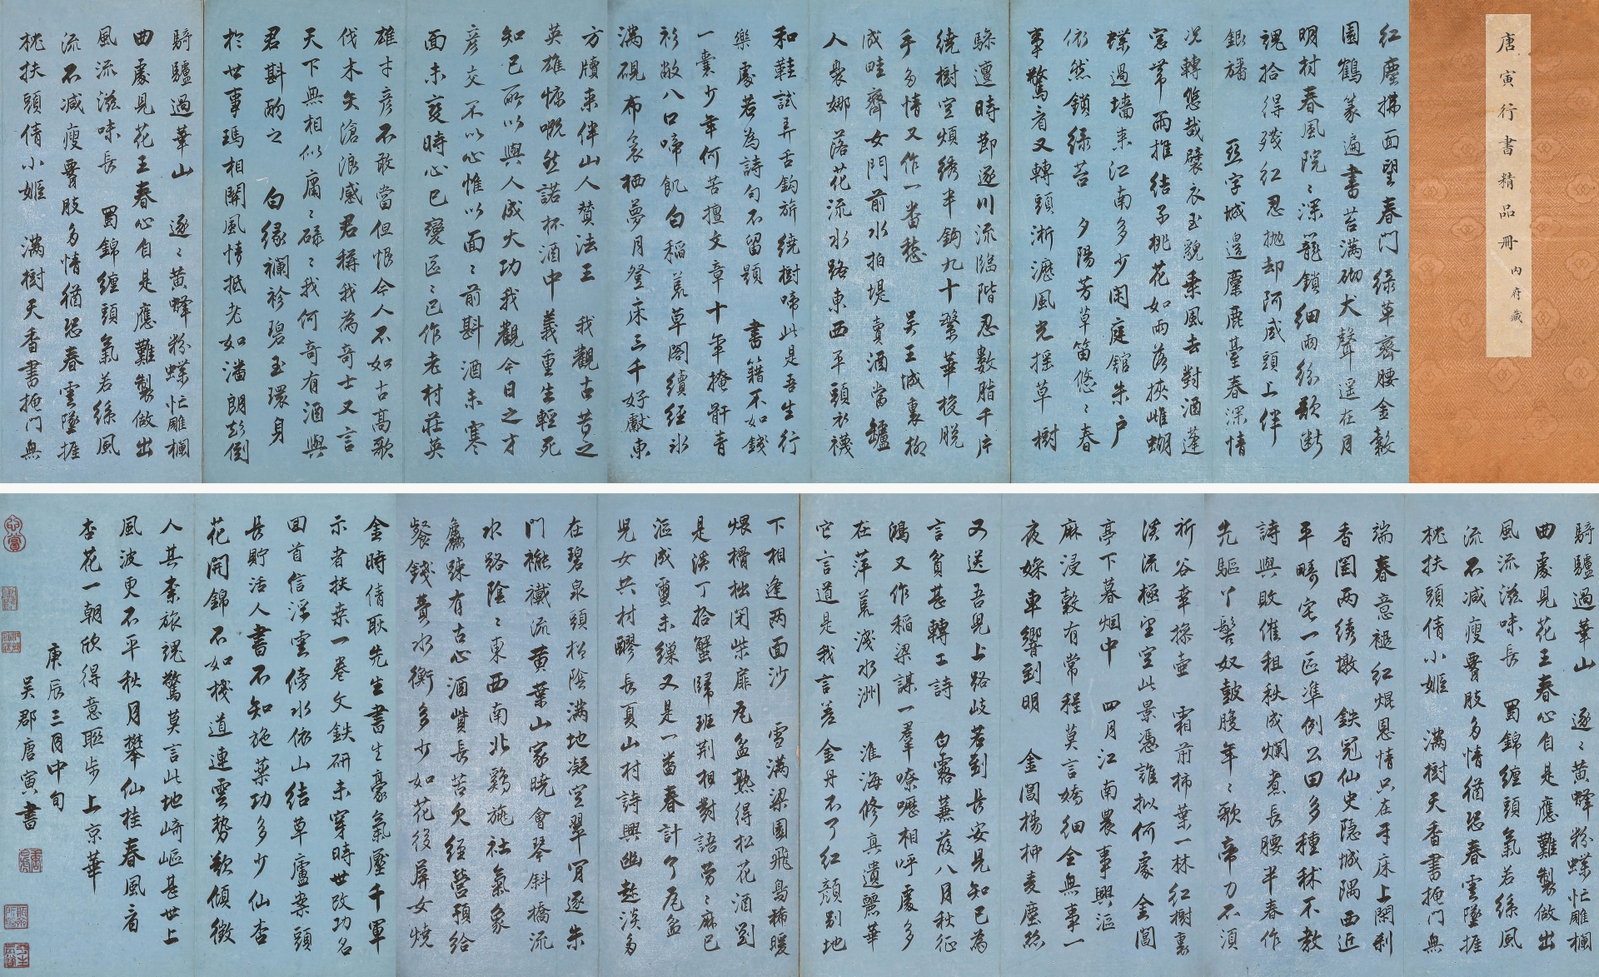 唐寅行書精品冊
內府藏
紅塵拂面望春門綠草齊腰金
園鶴篆遍書苔滿砌犬聲遙在月
明村春風院々深籠鎖細雨紛歌斷
魂拾得殘紅忍拋却阿咸頭上伴
銀旛 亞字城邊麋鹿臺春深情
況轉悠哉襞衣玉貌乘風去對酒蓬
窓帶雨推結子桃花如雨落挾雌蝴
蝶過墻來江南多少閑庭館朱戶
依然鎖綠苔 夕陽芳草笛悠々春
事驚看又轉頭淅瀝風光搖草樹
騄邅時節逐川流臨階忍數脂千片
繞樹空煩繡半鉤九十繁華梭脫
手多情又作一番愁 吳王城裏柳
成畦齊女門前水拍堤賣酒當壚
人裊娜落花流水路東西平頭衣襪
和鞋試弄舌鈎輈繞樹啼此是吾生行
樂處若為詩句不留題 書籍不如錢
一囊少年何苦擅文章十年掩骭青
衫敝八口啼飢白稻荒草閣續經冰
滿硯布衾栖夢月登床三千好獻東
方牘來伴山人贊法王 我觀古昔之
英雄慷慨然諾杯酒中義重生輕死
知己所以與人成大功我觀今日之才
彥交不以心惟以面々前斟酒未寒
面未變時心已變區々已作老村莊英
雄才彥不敢當但恨今人不如古高歌
伐木矢滄浪感君稱我為奇士又言
天下無相似庸々碌々我何奇有酒與
君斟酌之 白緣襴衫碧玉環身
於世事瑪相關風情抵老如潘朗彭倒
騎驢過華山 逐々黃蜂粉蝶忙雕欄
曲處見花王春心自是應難製做出
風流滋味長 蜀錦纏頭氣若絲風
流不減瘦要肢多情猶恐春雲墜捱
枕扶頭倩小姬 滿樹天香書掩門無
騎驢過華山 逐々黃蜂粉蝶忙雕欄
曲處見花王春心自是應難製做出
風流滋味長 蜀錦纏頭氣若絲風
流不減瘦要肢多情猶恐春雲墜捱
枕扶頭倩小姬 滿樹天香書掩門無
端春意褪紅焜恩情只在手床上閑剎
香閨兩綉墩 鉄冠仙史隱城隅西近
平疇宅一區準例公田多種秫不教
詩興敗催租秋成爛煮長腰半春作
先驅丫髻奴鼓腹年々歌帝力不須
祈谷幸操壺 霜前柿葉一林紅樹裏
淡流極望空此景憑誰擬何處金閶
亭下暮烟中 四月江南農事興漚
麻浸穀有常程莫言嬌細全無事一
夜娘車響到明 金閶楊柳麦塵歌
又送吾兄上路歧若到長安見知己為
言貧甚轉工詩 白露蕪葭八月秋征
鴻又作稻粱謀一羣嘹嚦相呼處多
在萍荒淺水洲 淮海修真遺麗華
它言道是我言差金丹不了紅顏別地
下相逢兩面沙 雪滿梁園飛鳥稀暖
煨榾柮閉柴扉瓦盆熟得松花酒劉
是溪丁拾蟹歸班荊相對語勞々麻已
漚成蠒未繅又是一番春計了瓦盆
兒女共村醪長夏山村詩興幽趁淡多
在碧泉頭松陰滿地凝空翠肎逐朱
門襶襳流黃葉山家曉會琴斜橋流
水路陰々東西南北鷄豚社氣象
麤踈有古心酒貲長苦欠經營預給
餐錢費水衡多少如花後屏女燒
金時倩耿先生書生豪氣壓千軍
示者扶桒一卷文鉄研未穿時世改功名
回首信浮雲傍水依山結草廬案頭
長貯活人書不知施藥功多少仙杏
花開錦不如棧道連雲勢欲傾徵
人其奈旅魂驚莫言此地崎嶇甚世上
風波更不平秋月攀仙桂春風看
杏花一朝欣得意聯步上京華
庚辰三月中旬
吳郡唐寅書